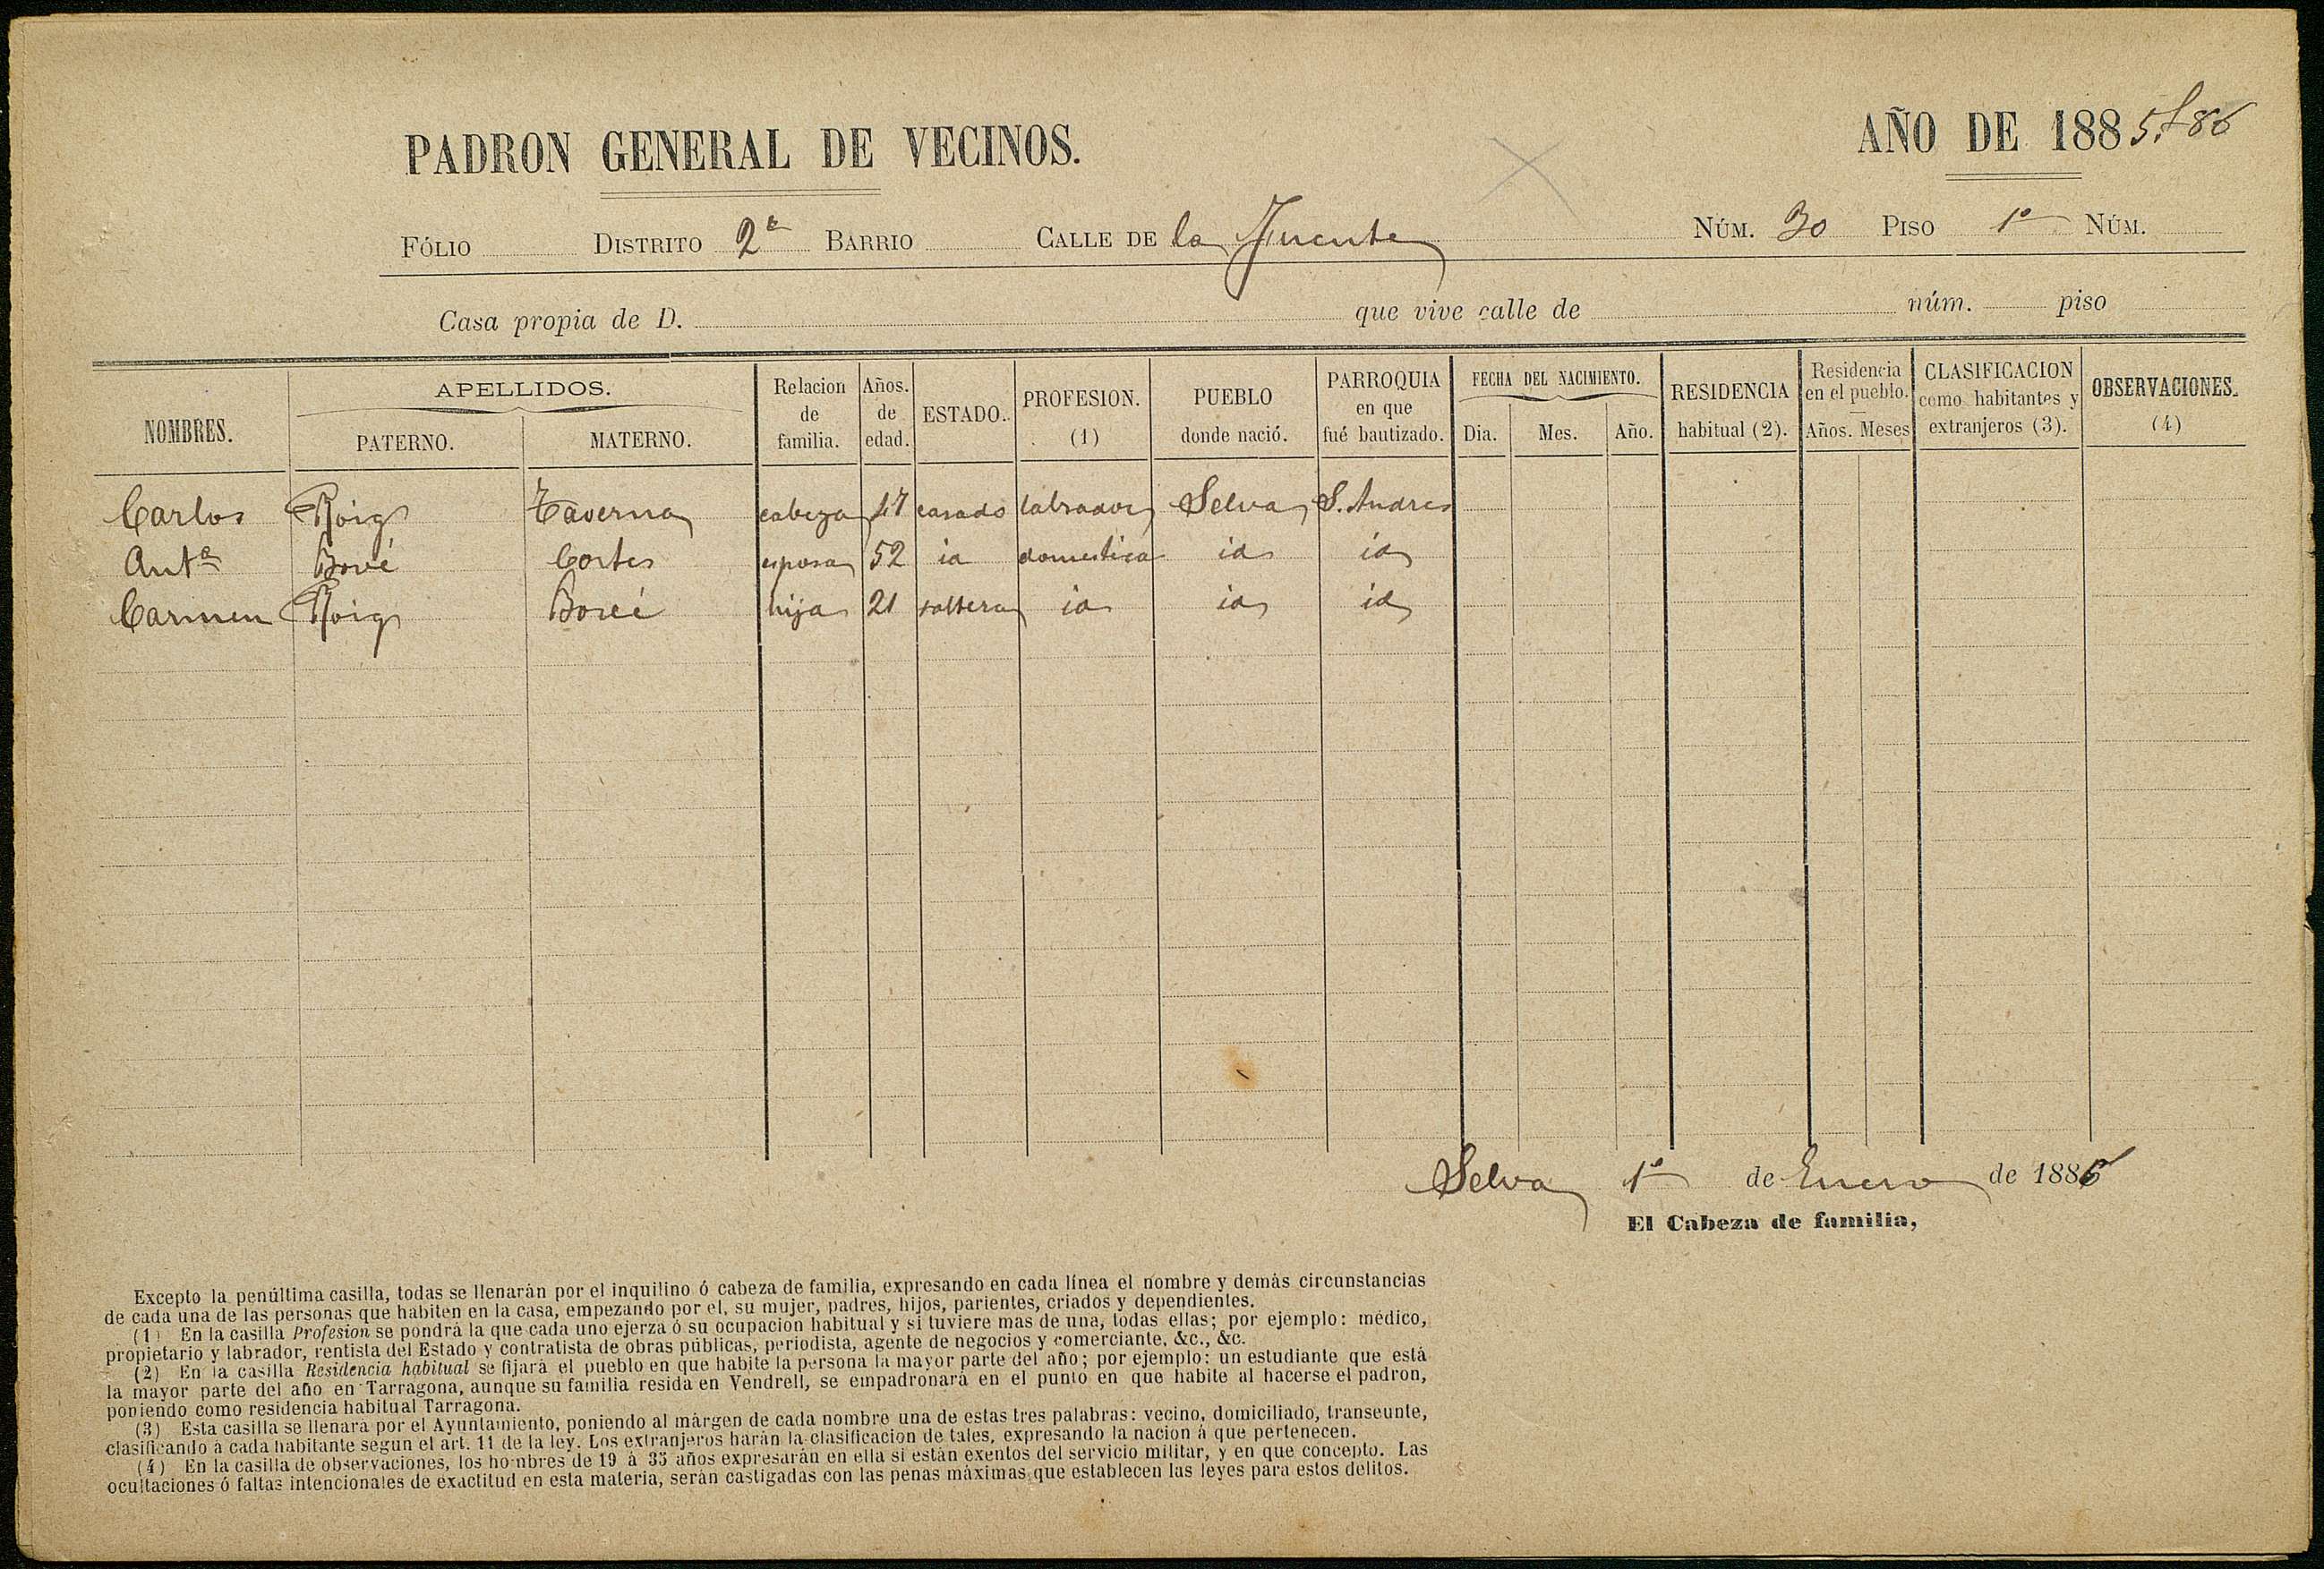 PADRON GENERAL DE VECINOS. AÑO DE 1885-86
FÓLIO DISTRITO 2º BARRIO CALLE DE la Fuente NÚM. 30 PISO 1º NÚM.
Casa propia de D. que vive calle de núm. piso
NOMBRES. APELLIDOS. PATERNO. MATERNO. Relacion de familia. Años. de edad. ESTADO. PROFESION. (1) PUEBLO donde nació. PARROQUIA en que fué bautizado. FECHA DEL NACIMIENTO. Dia. Mes. Año. RESIDENCIA habitual (2). Residencia en el pueblo. Años. Meses CLASIFICACION como habitantes y extranjeros (3). OBSERVACIONES. (4)
Carlos Roig Taverna cabeza 47 casado labrador Selva S. Andres
Antª Bové Cortes esposa 52 id domestica id id
Carmen Roig Bové hija 21 soltera id id id
Selva 1º de Enero de 1886
El Cabeza de familia,
Excepto la penúltima casilla, todas se llenarán por el inquilino ó cabeza de familia, expresando en cada línea el nombre y demás circunstancias
de cada una de las personas que habiten en la casa, empezando por el, su mujer, padres, hijos, parientes, criados y dependientes.
(1) En la casilla Profesion se pondrá la que cada uno ejerza ó su ocupacion habitual y si tuviere mas de una, todas ellas; por ejemplo: médico,
propietario y labrador, rentista del Estado y contratista de obras públicas, periodista, agente de negocios y comerciante, &c., &c.
(2) En la casilla Residencia habitual se fijará el pueblo en que habite la persona la mayor parte del año; por ejemplo: un estudiante que está
la mayor parte del año en Tarragona, aunque su familia resida en Vendrell, se empadronará en el punto en que habite al hacerse el padron,
poniendo como residencia habitual Tarragona.
(3) Esta casilla se llenará por el Ayuntamiento, poniendo al márgen de cada nombre una de estas tres palabras: vecino, domiciliado, transeunte,
clasificando á cada habitante segun el art. 11 de la ley. Los extranjeros harán la clasificacion de tales, expresando la nacion á que pertenecen.
(4) En la casilla de observaciones, los hombres de 19 á 35 años expresarán en ella si están exentos del servicio militar, y en que concepto. Las
ocultaciones ó faltas intencionales de exactitud en esta materia, serán castigadas con las penas máximas que establecen las leyes para estos delitos.